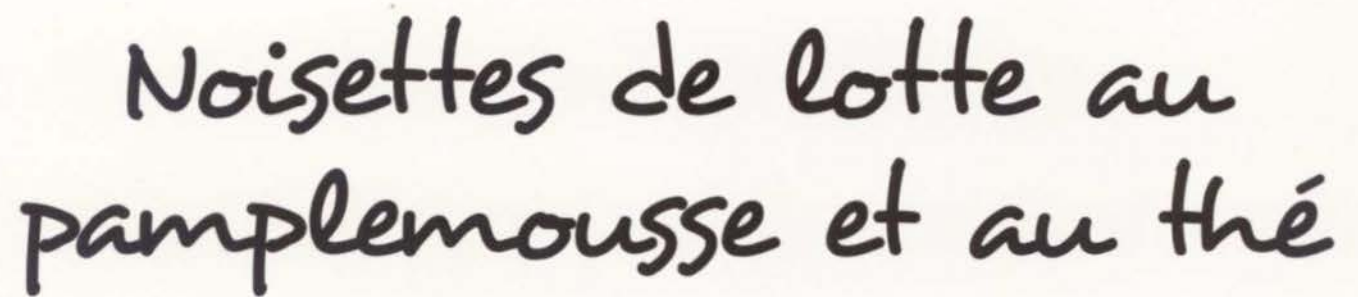 Noisettes de lotte au
pamplemousse et au thé